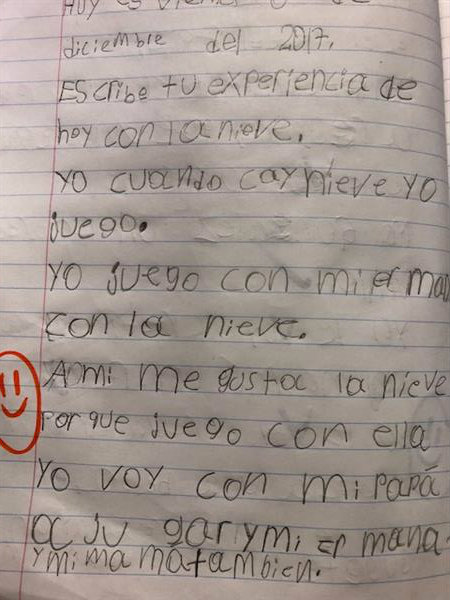 Hoy es viernes
diciembre del 2017.
Escribe tu experiencia de
hoy con la nieve.
Yo cuando cay nieve yo
juego.
Yo juego con mi erma
con la nieve.
Aomi me gusta la nieve
porque juego con ella
Yo voy con mi papá
a ju gar y mi ermana
y mi mamá tambien.